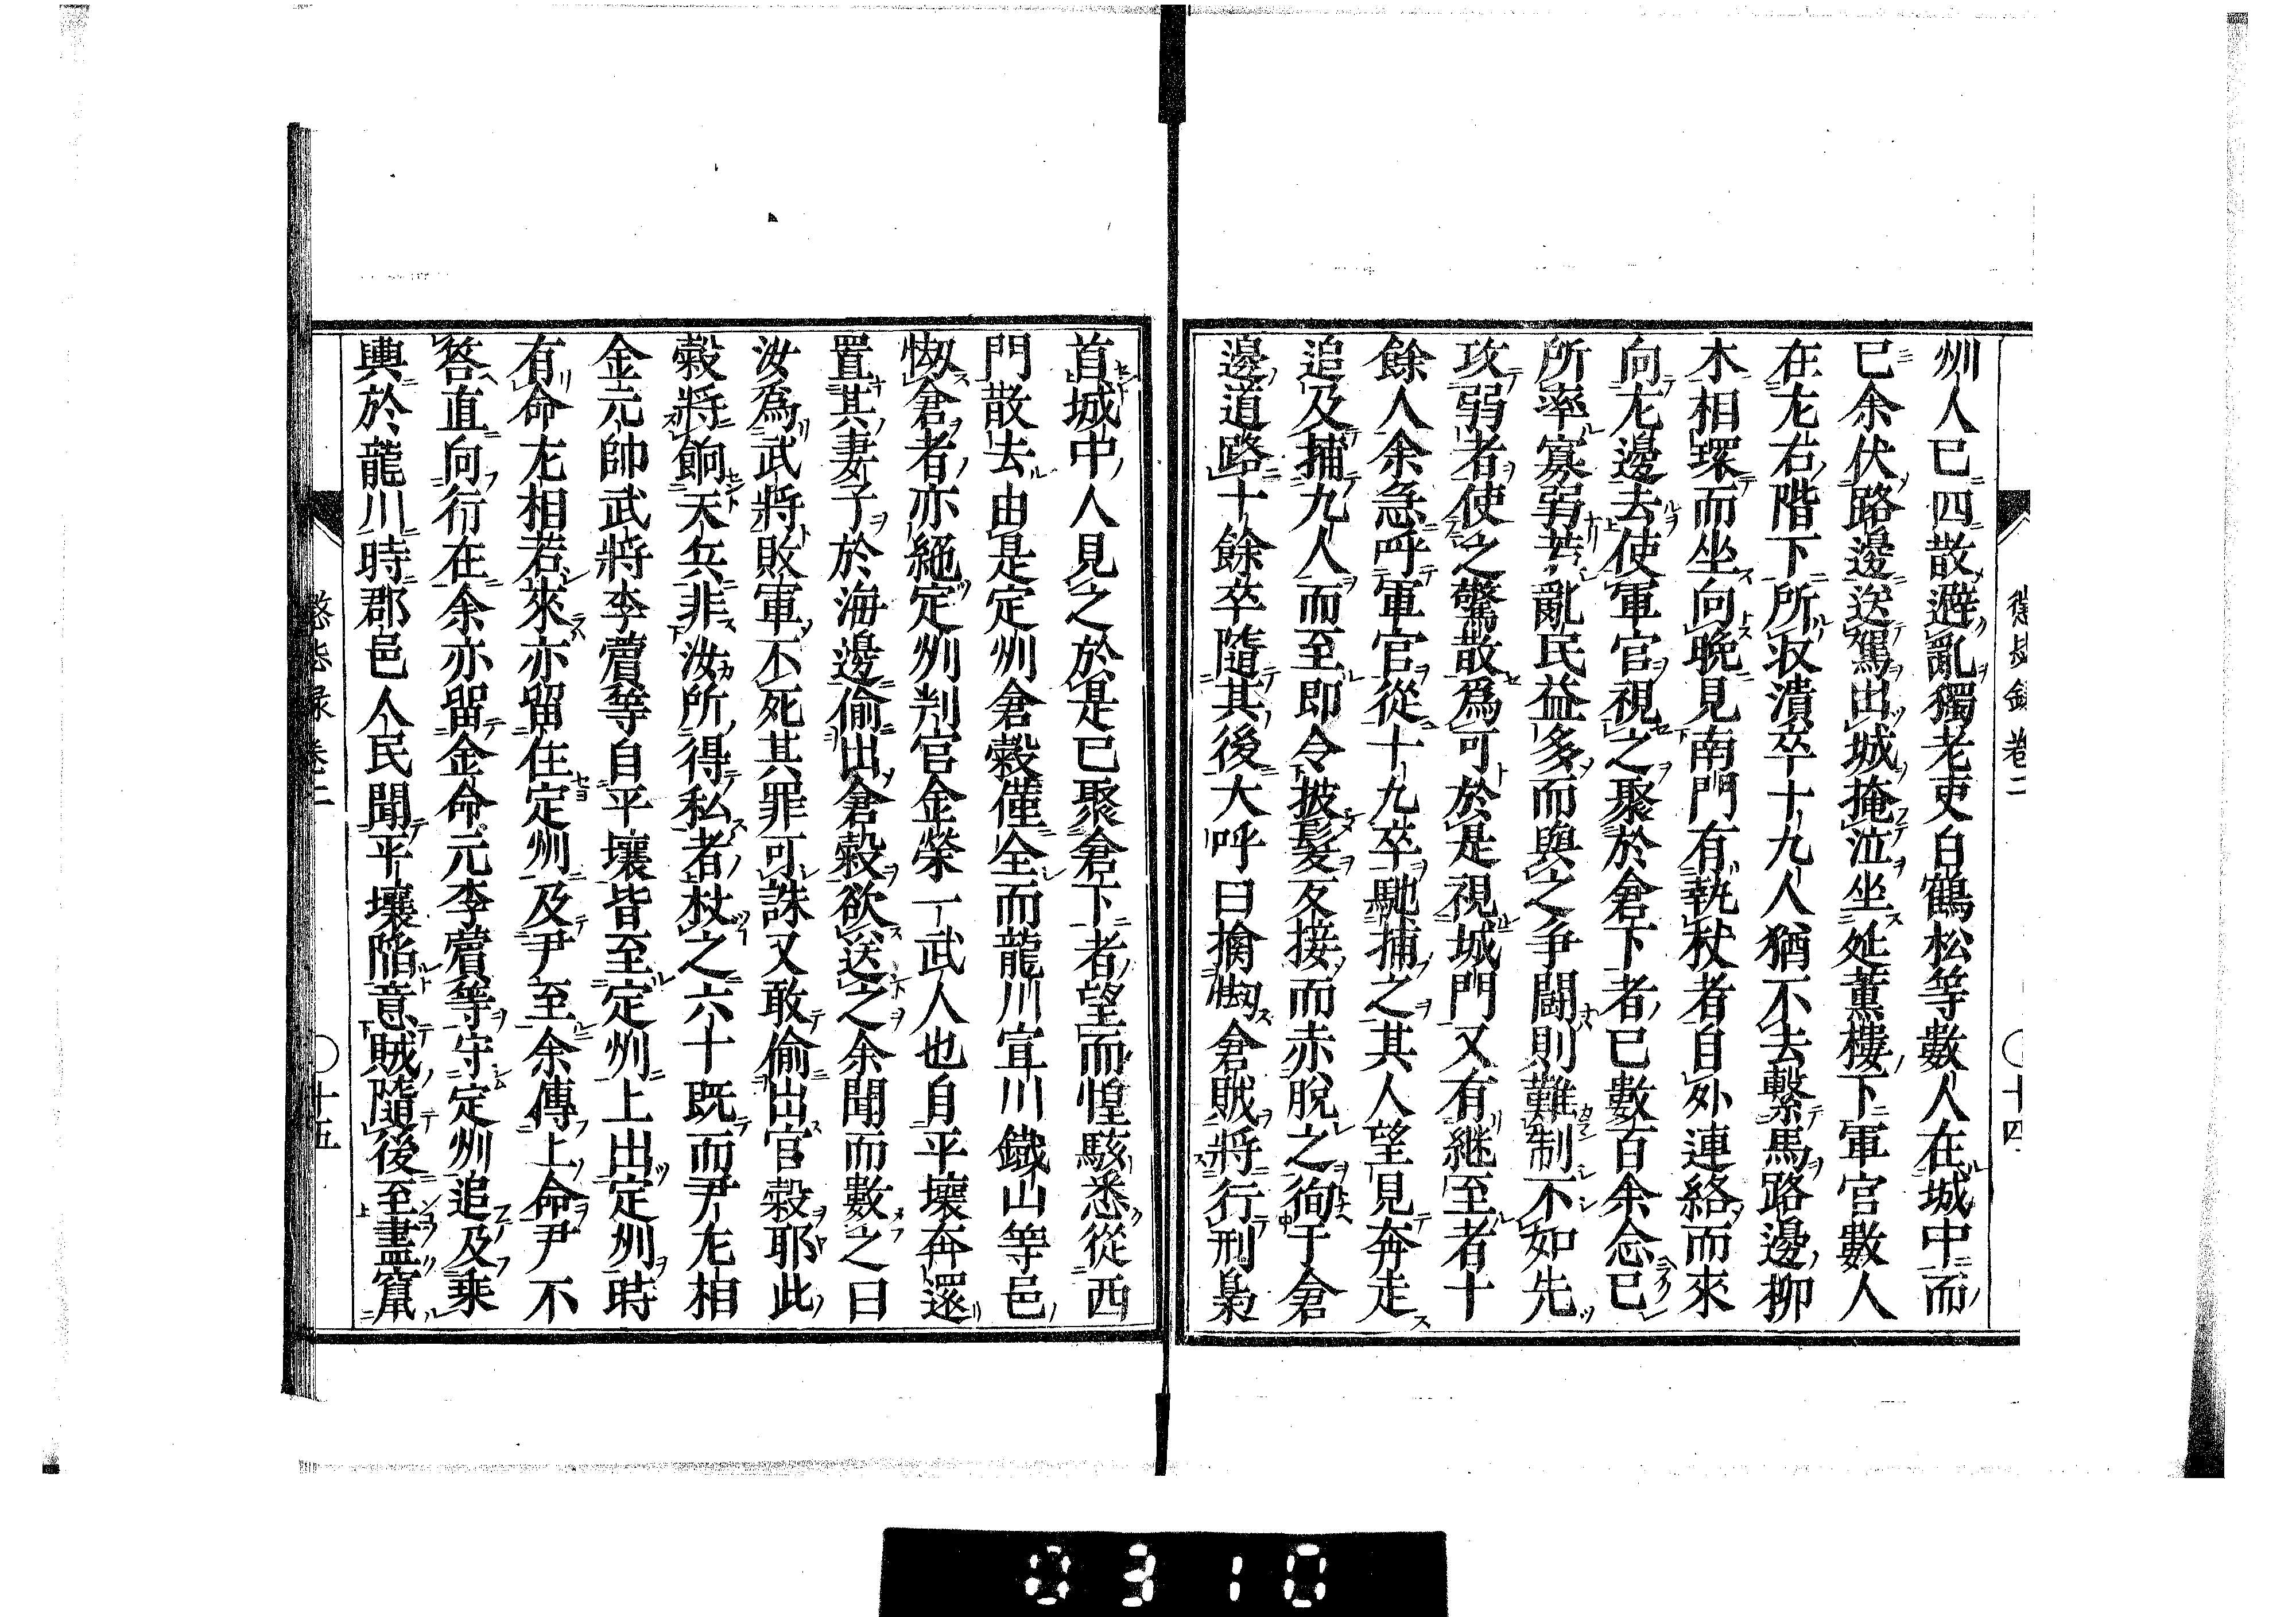 懲毖録卷二
〇十四
州人已四散避亂獨老吏白鶴松等數人在城中而
已余伏路邊送駕出城掩泣坐延薰樓下軍官數人
在左右階下所收潰卒十九人猶不去繫馬路邊柳
木相環而坐向晩見南門有執杖者自外連絡而來
向左邊去使軍官視之聚於倉下者已數百余念已
所率寡弱若亂民益多而與之爭鬪則難制不如先
攻弱者使之驚散爲可於是視城門又有繼至者十
餘人余急呼軍官從十九卒馳捕之其人望見奔走
追及捕九人而至即令披髮反接而赤脱之徇于倉
邊道路十餘卒隨其後大呼曰擒刼倉賊將行刑梟
首城中人見之於是已聚倉下者望而惶駭悉從西
門散去由是定州倉穀僅全而龍川宣川鐵山等邑
刼倉者亦絕定州判官金榮一武人也自平壤奔還
置其妻子於海邊偷出倉穀欲送之余聞而數之曰
汝爲武將敗軍不死其罪可誅又敢偷出官穀耶此
穀將餉天兵非汝所得私者杖之六十既而尹左相
金元帥武將李薲等自平壤皆至定州上出定州時
有命左相若來亦留住定州及尹至余傳上命尹不
答直向行在余亦留金命元李薲等守定州追及乘
輿於龍川時郡邑人民聞平壤陷意賊隨後至盡竄
懲毖録卷二
〇十五
0310